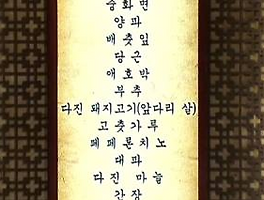 중화면
양파
배춧잎
당근
애호박
부추
다진 돼지고기(앞다리 살)
고춧가루
페페론치노
대파
다진 마늘
간장